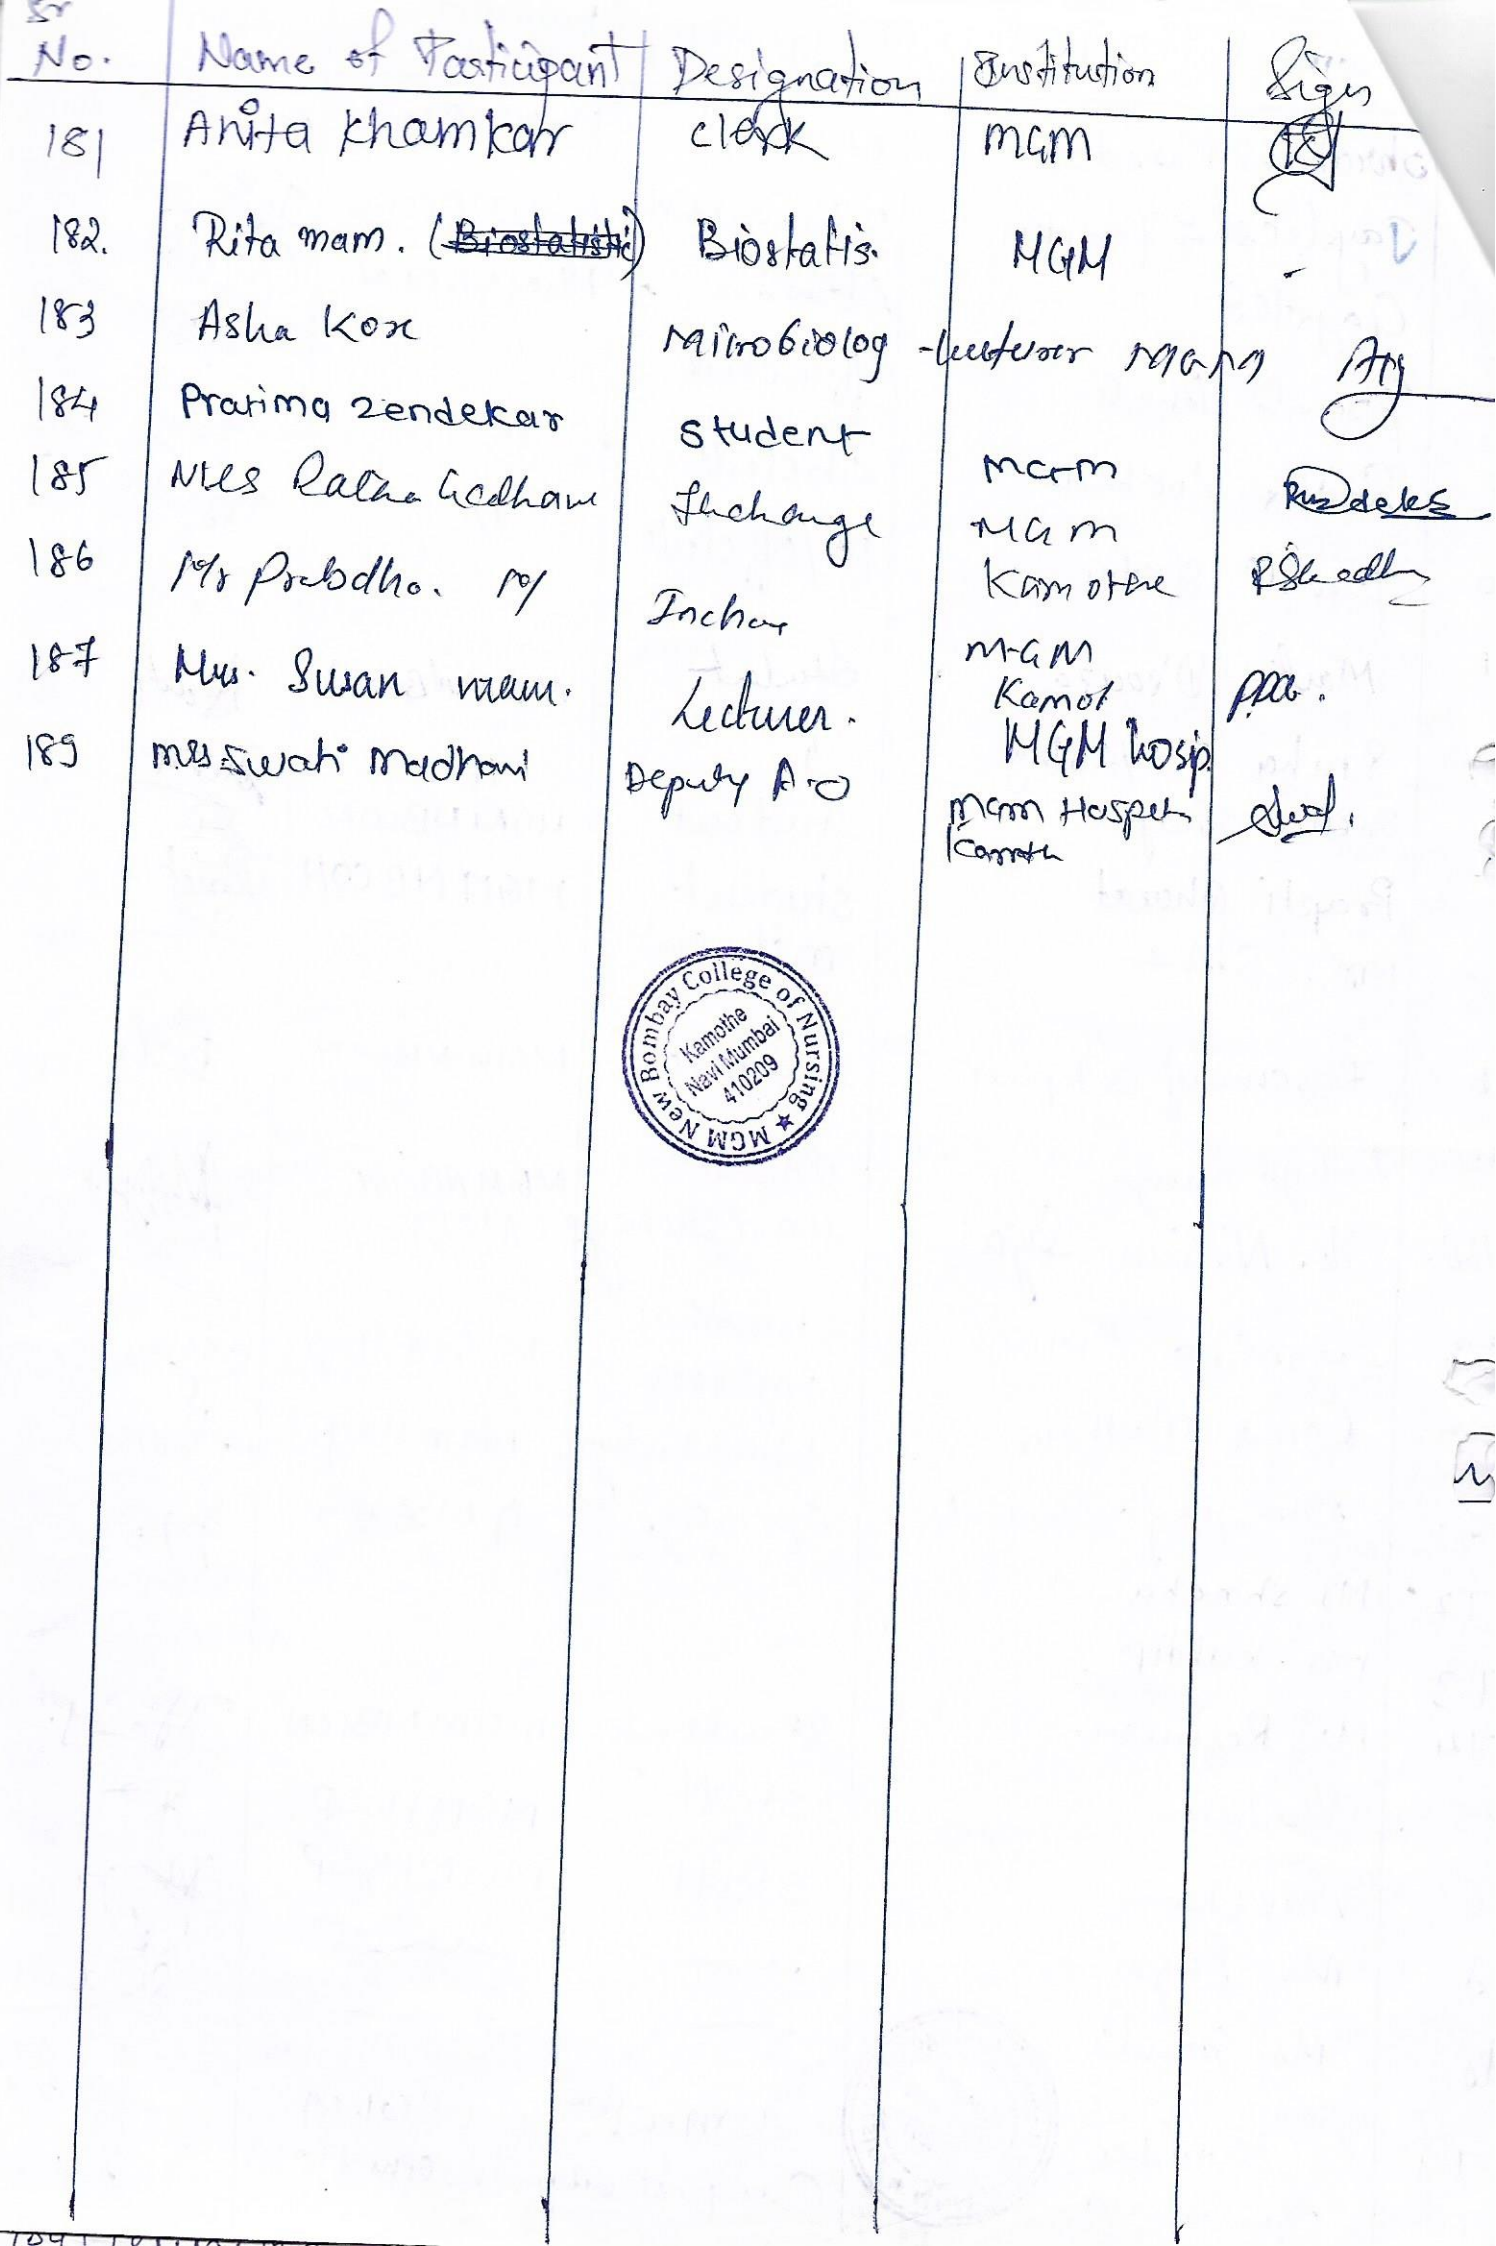 Sr
No. Name of Participant Designation Institution Sign
181 Anita Khamkar Clerk MGM
182. Rita mam. (Biostatistic) Biostatis. MGM -
183 Asha Kore Microbiolog -lecturer MGM
184 Pratima Zendekar Student MGM
185 Mrs Ratna Gadhave Incharge MGM
Kamothe
186 Mr Prabodha. M Inchar MGM
Kamot
187 Mrs. Susan mam. Lecturer. MGM hosip.
189 Mrs Swati Madhavi Deputy A.O MGM Hospit
Kamoth
MGM New Bombay College of Nursing ★
Kamothe
Navi Mumbai
410209